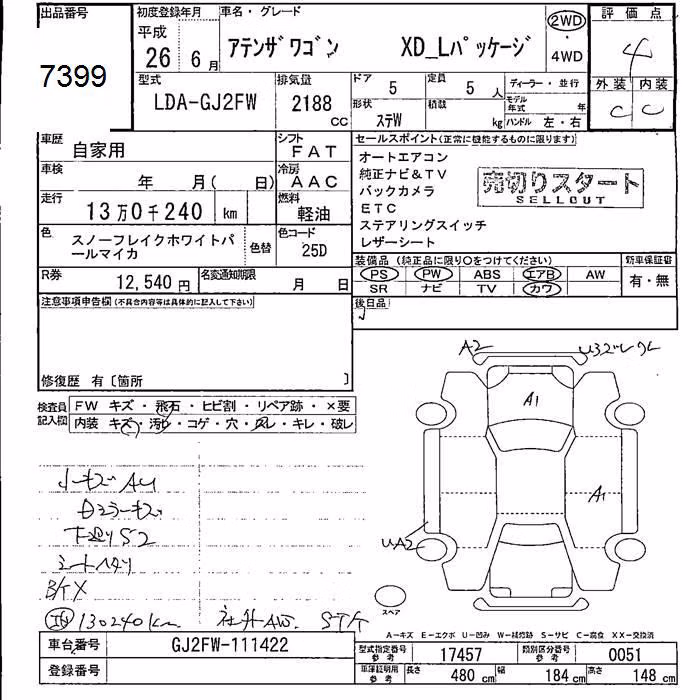 出品番号
7399
初度登録年月
平成
26 6月
車名・グレード
アテンザワゴン XD_Lパッケージ
2WD
・
4WD
評価点
4
外装 内装
C C
型式
LDA-GJ2FW
排気量
2188 CC
ドア
5
定員
5 人
形状
ステW
積載
kg
ディーラー・並行
モデル年式 年
ハンドル 左・右
車歴
自家用
シフト
FAT
車検
年 月( 日)
冷房
AAC
走行
13万0千240 km
燃料
軽油
色
スノーフレイクホワイトパールマイカ
色替
色コード
25D
R券
12,540円
名変通知期限
月 日
セールスポイント(正常に機能するものに限ります)
オートエアコン
純正ナビ&TV
バックカメラ
ETC
ステアリングスイッチ
レザーシート
売切りスタート
SELLOUT
装備品(純正品に限り○をつけてください)
PS PW ABS エアB AW
SR ナビ TV カワ
新車保証書
有・無
後日品
注意事項申告欄(不具合内容等は具体的に記入して下さい)
修復歴 有〔箇所 〕
検査員記入欄
FW キズ・飛石・ヒビ割・リペア跡・×要
内装 キズ・汚れ・コゲ・穴・スレ・キレ・破レ
小キズAU
下廻りS2
シートヘタリ
130240km
社外AW
A2
A1
A1
UA2
スペア
A-キズ E-エクボ U-凹み W-補修跡 S-サビ C-腐食 XX-交換済
車台番号
GJ2FW-111422
登録番号
型式指定番号 参考
17457
類別区分番号 参考
0051
車庫証明用 参考
長さ
480 cm
幅
184 cm
高さ
148 cm